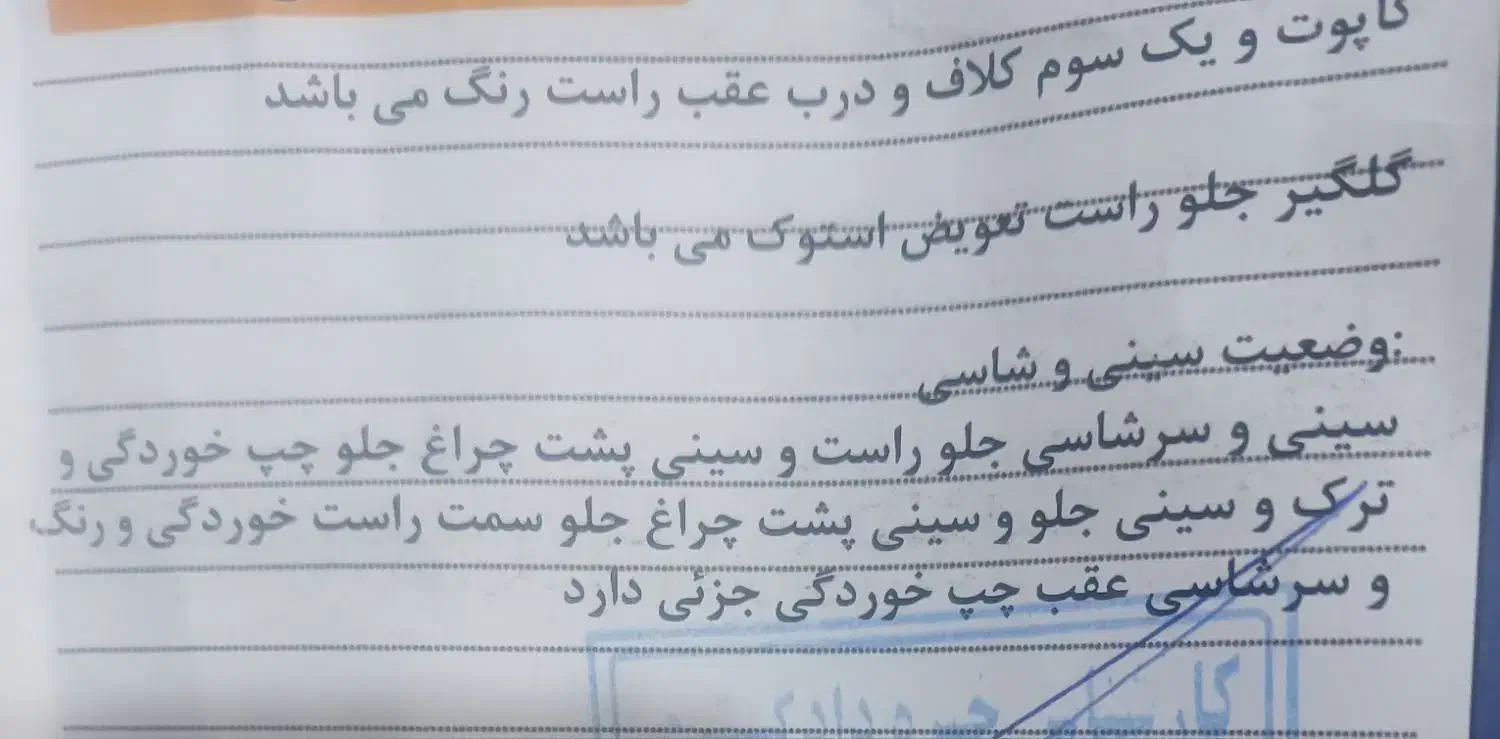 کاپوت و یک سوم کلاف و درب عقب راست رنگ می باشد
گلگیر جلو راست تعویض استوک می باشد
:وضعیت سینی و شاسی
سینی و سرشاسی جلو راست و سینی پشت چراغ جلو چپ خوردگی و
ترک و سینی جلو و سینی پشت چراغ جلو سمت راست خوردگی و رنگ
و سرشاسی عقب چپ خوردگی جزئی دارد